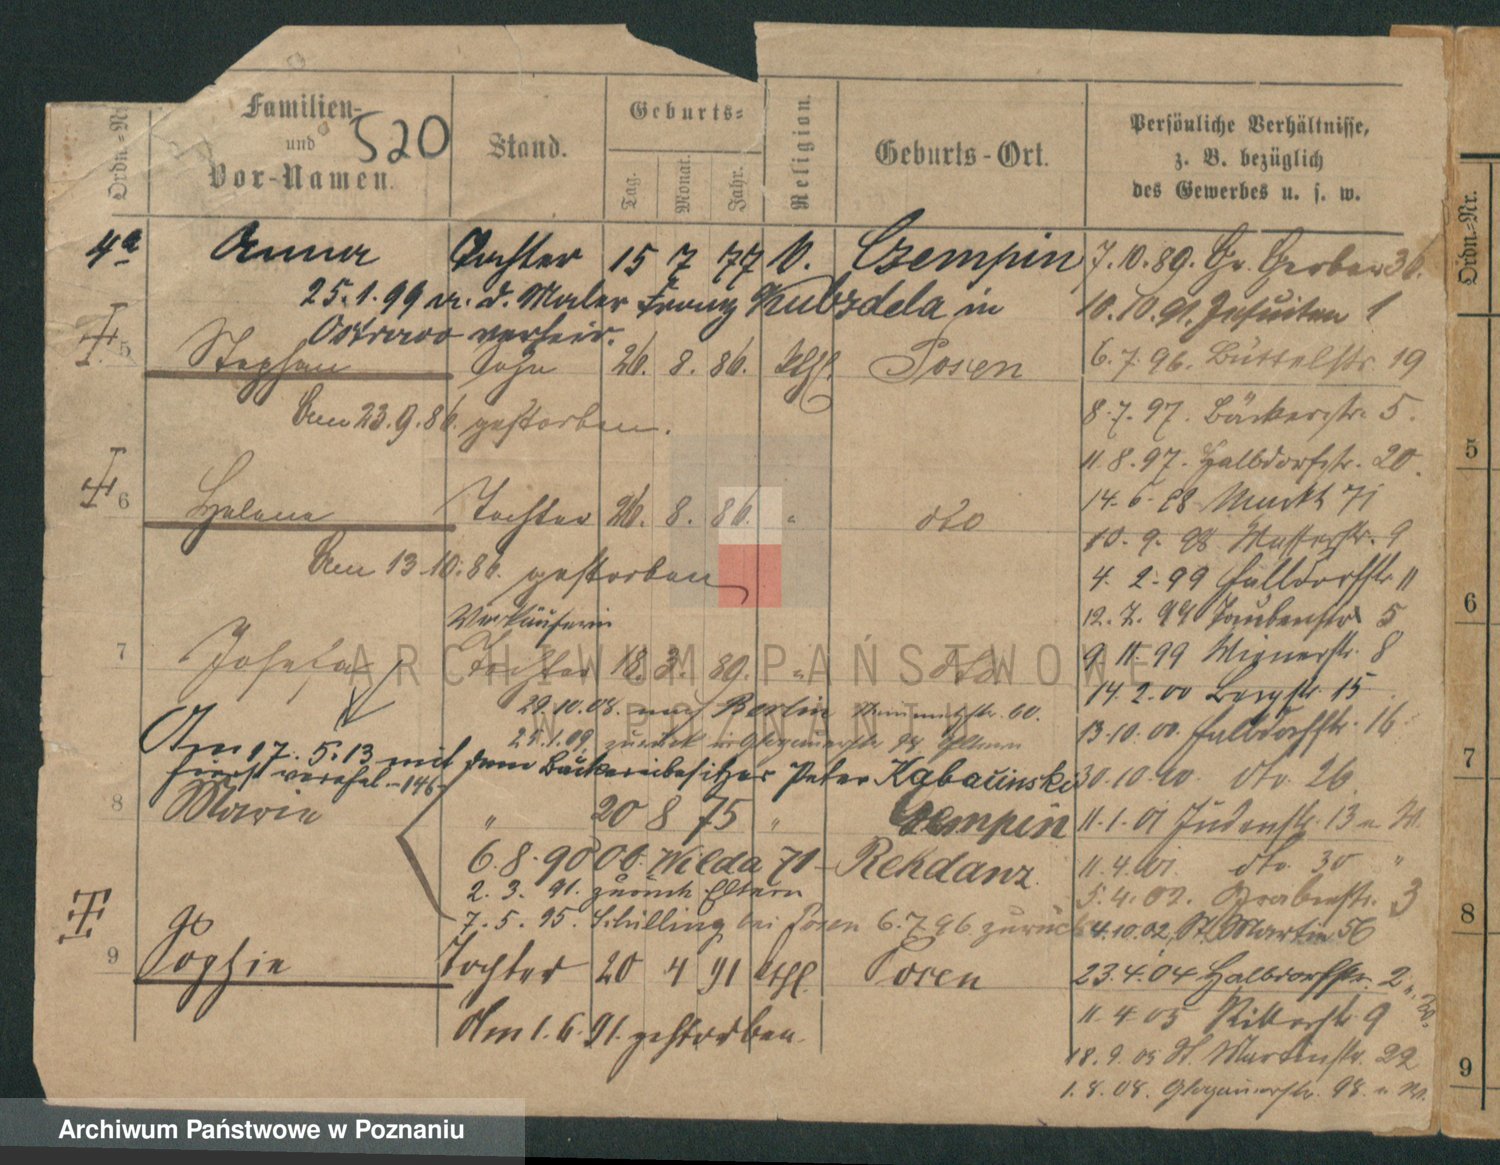 Ordn.-Nr.
Familien-
und
Vor-Namen.
520
Stand.
Geburts-
Tag.
Monat.
Jahr.
Religion.
Geburts-Ort.
Persönliche Verhältnisse,
z. B. bezüglich
des Gewerbes u. s. w.
4a Anna Tochter 15 7 77 Czempin 7.10.89. Gr. Gerber 36.
25.1.99 m. d. Maler Franz Kubzdela in 10.10.91. Jesuiten 1
Ostrowo verheir.
5 Stephan Sohn 26. 8. 86. kthl. Posen 6.7.96. Büttelstr. 19
Am 23.9.86. gestorben. 8.7.97. Bäckerstr. 5.
11.8.97. Halbdorfstr. 20.
6 Helene Tochter 26. 8. 86. " dto 14.6.98 Markt 71
10.9.98 Wasserstr. 9
Am 13.10.86. gestorben 4.2.99 Halbdorfstr. 11
Verkäuferin 12.7.99 Taubenstr. 5
7 Josefa Tochter 18. 3. 89. " dto 9.11.99 Wienerstr. 8
14.2.00 Bergstr. 15
29.10.08. nach Berlin 13.10.00. Halbdorfstr. 16
25.1.09. zurück Glogauerstr. Eltern
Am 17.5.13 mit dem Bäckereibesitzer Peter Kabacinski 30.10.00. dto. 26
hierst verehel. - 146 -
8 Marie " 20 8 75 " Czempin 11.1.01 Judenstr. 13
6.8.90 Wilda 71 - Rehdanz. 11.4.01. dto 30 "
2.3.91. zurück Eltern 5.4.02. Grabenstr. 3
7.5.95. Schilling bei Posen 6.7.96 zurück 4.10.02. St. Martin 56
9 Sophie Tochter 20 4 91 kthl. Posen 23.4.04 Halbdorfstr. 2
11.4.05 Ritterstr. 9
Am 1.6.91. gestorben. 18.9.05 St. Martinstr. 22
1.8.08. Glogauerstr. 98.
Ordn.-Nr.
5
6
7
8
9
ARCHIWUM PAŃSTWOWE
W POZNANIU
Archiwum Państwowe w Poznaniu